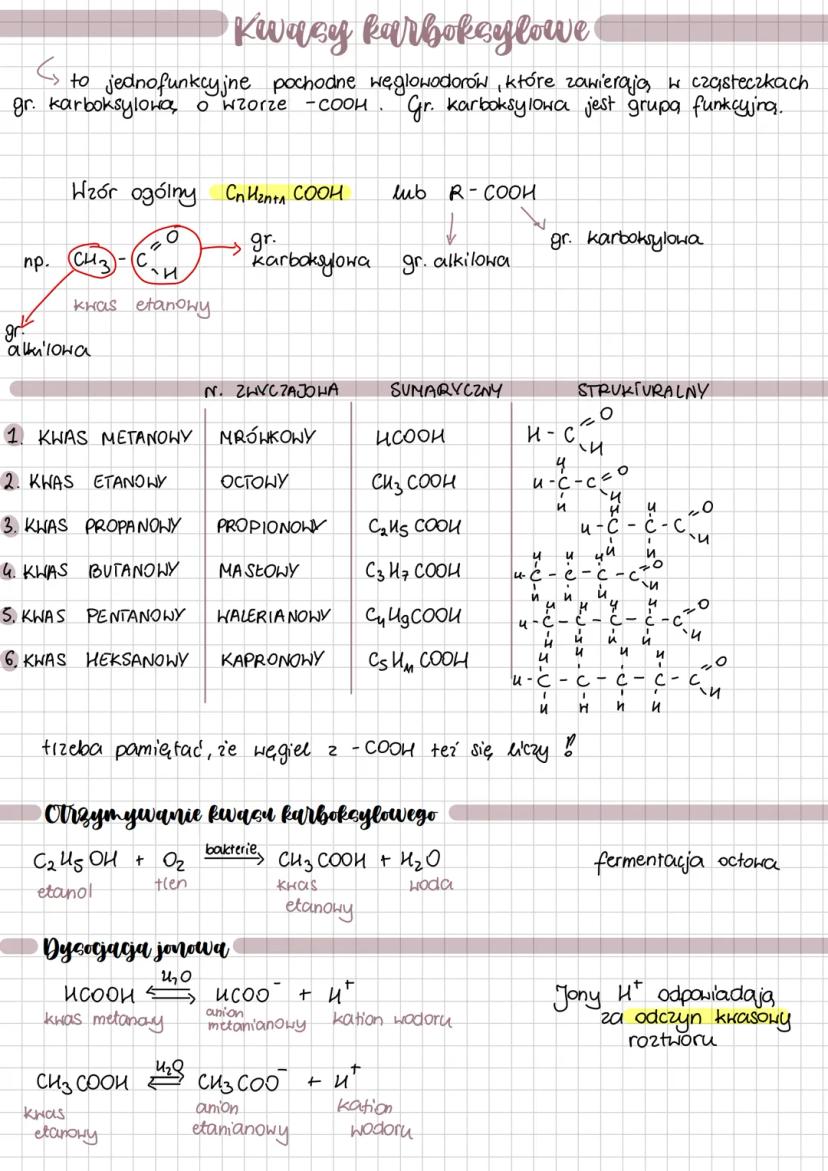 Kwasy karboksylowe
to jednofunkcyjne pochodne węglowodorów, które zawierają w cząsteczkach
gr. karboksylową o wzorze -COOH. Gr. karboksylowa jest grupą funkcyjną.
Wzór ogólny CnH2n+1 COOH lub R-COOH
np. CH3 - C =O H
gr. karboksylowa
gr. alkilowa
gr. karboksylowa
kwas etanowy
gr. alkilowa
N. ZWYCZAJOWA SUMARYCZNY STRUKTURALNY
1. KWAS METANOWY MRÓWKOWY HCOOH H-C =O H
2. KWAS ETANOWY OCTOWY CH3COOH H-C-C =O H H H H
3. KWAS PROPANOWY PROPIONOWY C2H5COOH H-C-C-C =O H H H H H
4. KWAS BUTANOWY MASŁOWY C3H7COOH H-C-C-C-C =O H H H H H H H
5. KWAS PENTANOWY WALERIANOWY C4H9COOH H-C-C-C-C-C =O H H H H H H H H H
6. KWAS HEKSANOWY KAPRONOWY C5H11COOH H-C-C-C-C-C =O H H H H H H H H H
trzeba pamiętać, że węgiel z -COOH też się liczy!
Otrzymywanie kwasu karboksylowego
C2H5OH + O2 bakterie→ CH3COOH + H2O fermentacja octowa
etanol tlen kwas etanowy woda
Dysocjacja jonowa
HCOOH H2O⇌ HCOO⁻ + H⁺
kwas metanowy anion metanianowy kation wodoru
Jony H⁺ odpowiadają
za odczyn kwasowy
roztworu
CH3COOH H2O⇌ CH3COO⁻ + H⁺
kwas etanowy anion etanianowy kation wodoru